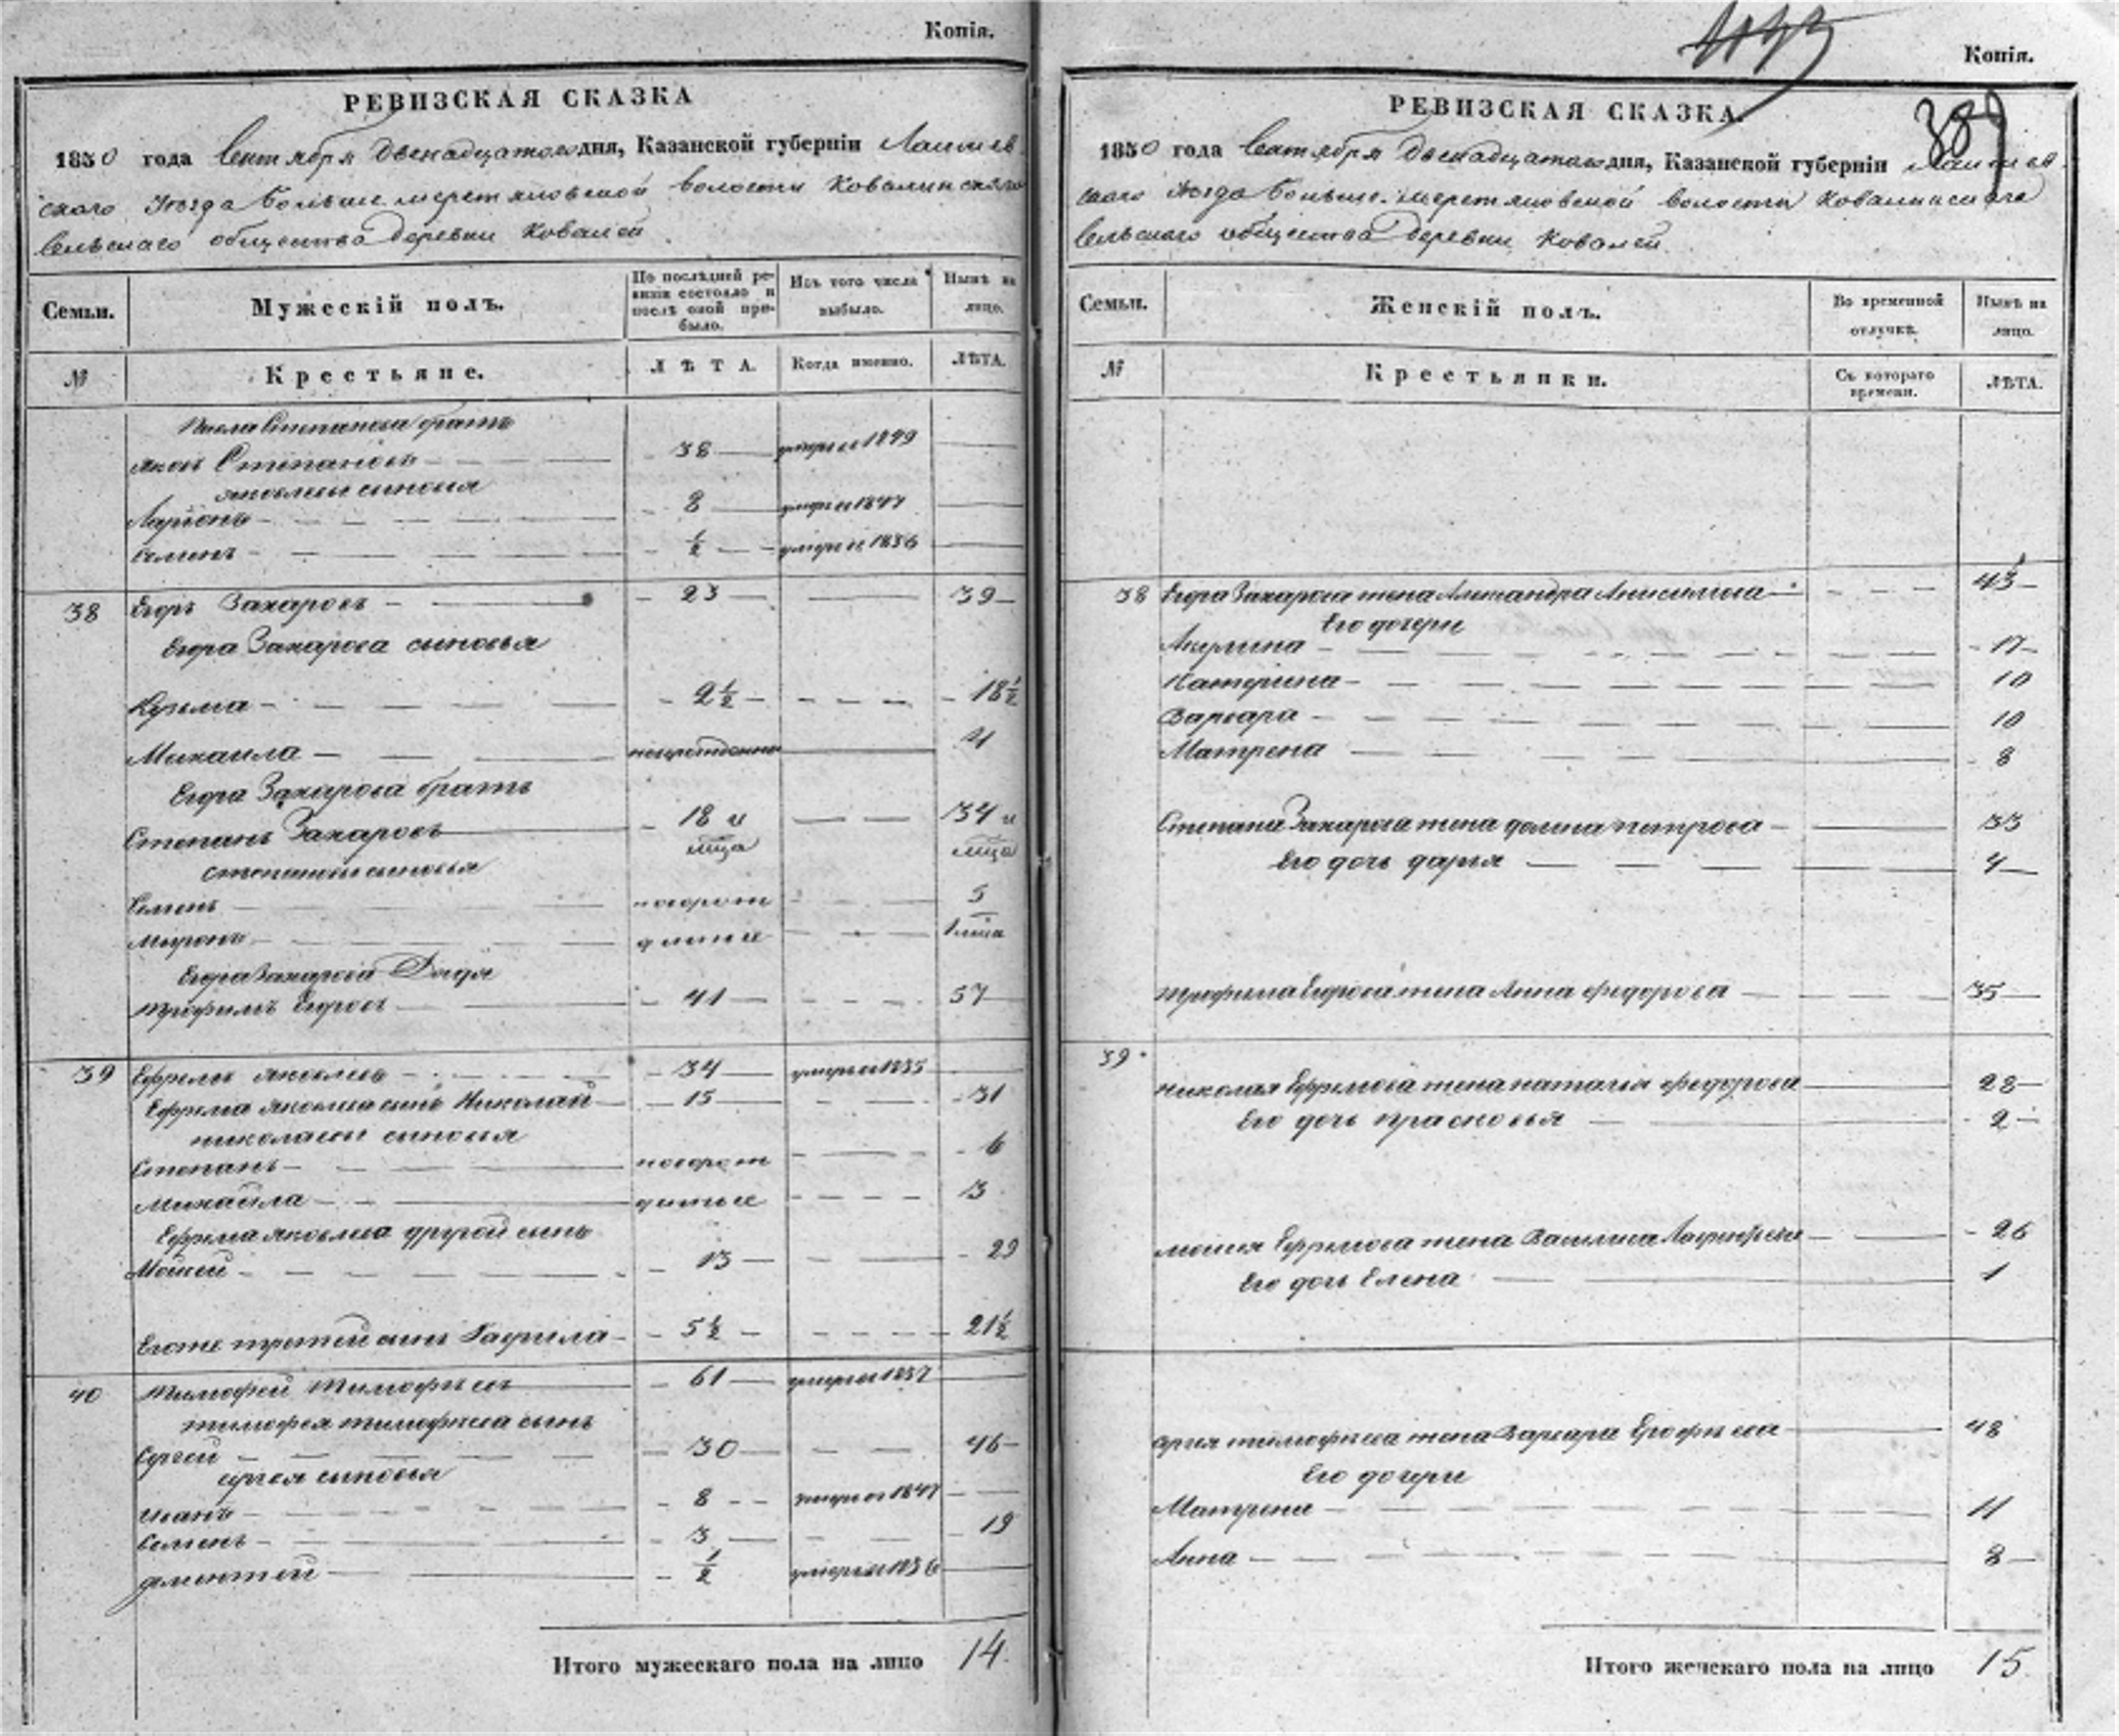 Копія.
РЕВИЗСКАЯ СКАЗКА
1850 года Сентября двенадцатого дня, Казанской губерніи Лаишев
скаго Уѣзда больше меретяковской волости Ковалинскаго
сельскаго общества деревни Ковалей
Семьи. Мужескій полъ. По послѣдней ре-визіи состояло и послѣ оной при-было. Изъ того числа выбыло. Нынѣ на лицо.
№ Крестьяне. ЛѢТА. Когда именно. ЛѢТА.
Степанова братъ
Яковъ Степановъ 38 умре въ 1849
Яковлевы сыновья
Ларіонъ 8 умре въ 1847
Семенъ ½ умре въ 1836
38 Егоръ Захаровъ 23 39
Егора Захарова сыновья
Кузьма 2½ 18½
Михаила новорожденной 4
Егора Захарова братъ
Степанъ Захаровъ 18 и 34 и
Степановы сыновья
Семенъ новорож 5
Миронъ денные
Егора Захарова дядя
Трофимъ Егоровъ 41 57
39 Ефремъ Яковлевъ 34 умре въ 1835
Ефрема Яковлева сынъ Николай 15 31
Николаевы сыновья
Степанъ новорож 6
Михайла денные 3
Ефрема Яковлева другой сынъ
Мойсей 13 29
Егоже третей сынъ Гаврила 5½ 21½
40 Тимофей Тимофеевъ 61 умре въ 1837
Тимофея Тимофеева сынъ
Сергей 30 46
Сергея сыновья
Иванъ 8 умре въ 1847
Семенъ 3 19
Дментей ½ умре въ 1836
Итого мужескаго пола на лицо 14
Копія.
389
РЕВИЗСКАЯ СКАЗКА.
1850 года Сентября двенадцатого дня, Казанской губерніи Лаишев
скаго Уѣзда больше меретяковской волости Ковалинскаго
сельскаго общества деревни Ковалей
Семьи. Женскій полъ. Во временной отлучкѣ. Нынѣ на лицо.
№ Крестьянки. Съ котораго времени. ЛѢТА.
38 Егора Захарова жена Александра Анисимова 43
Его дочери
Акулина 17
Катерина 10
Варвара 10
Матрена 8
Степана Захарова жена домна петрова 33
Его дочь дарья 4
Трофима Егорова жена Анна федорова 35
39
Николая Ефремова жена наталья федорова 28
Его дочь прасковья 2
Мойсея Ефремова жена Василиса 26
Его дочь Елена 1
Сергея тимофеева жена Варвара Ерофѣева 48
Его дочери
Матрена 11
Анна 8
Итого женскаго пола на лицо 15